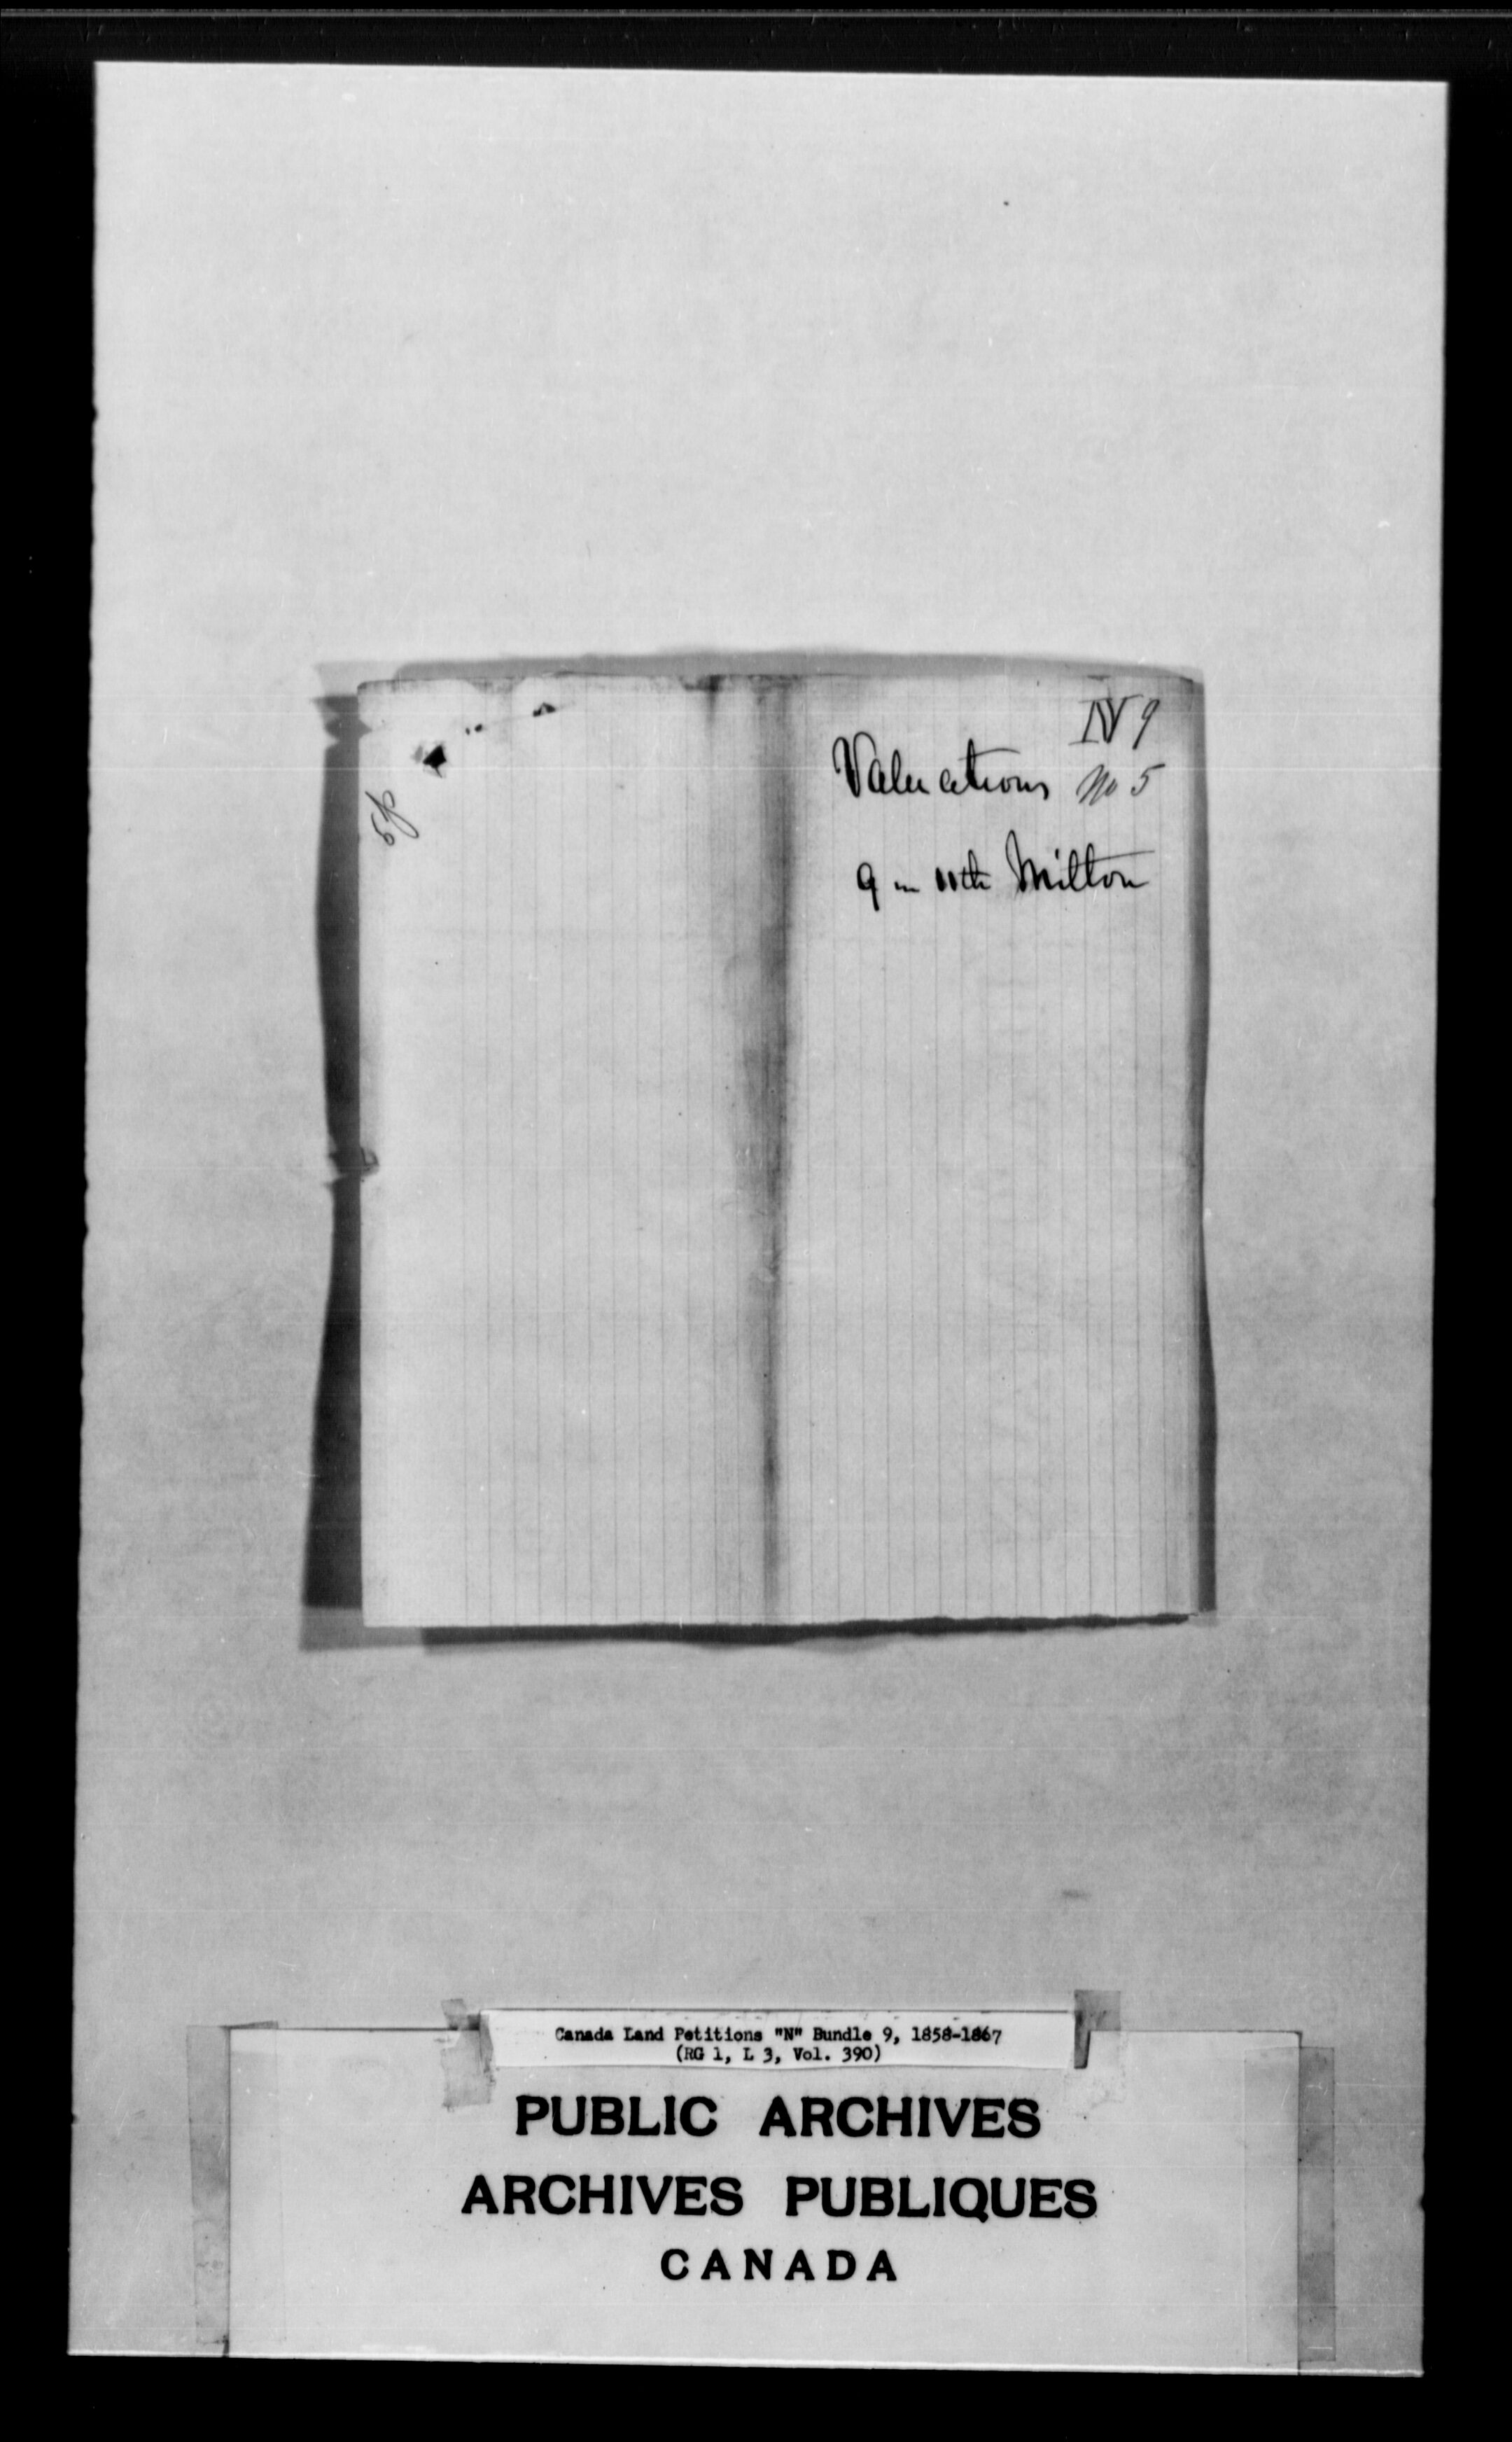 N 9
Valuations No 5
9 in 11th Milton
Canada Land Petitions "N" Bundle 9, 1858-1867
(RG 1, L 3, Vol. 390)
PUBLIC ARCHIVES
ARCHIVES PUBLIQUES
CANADA